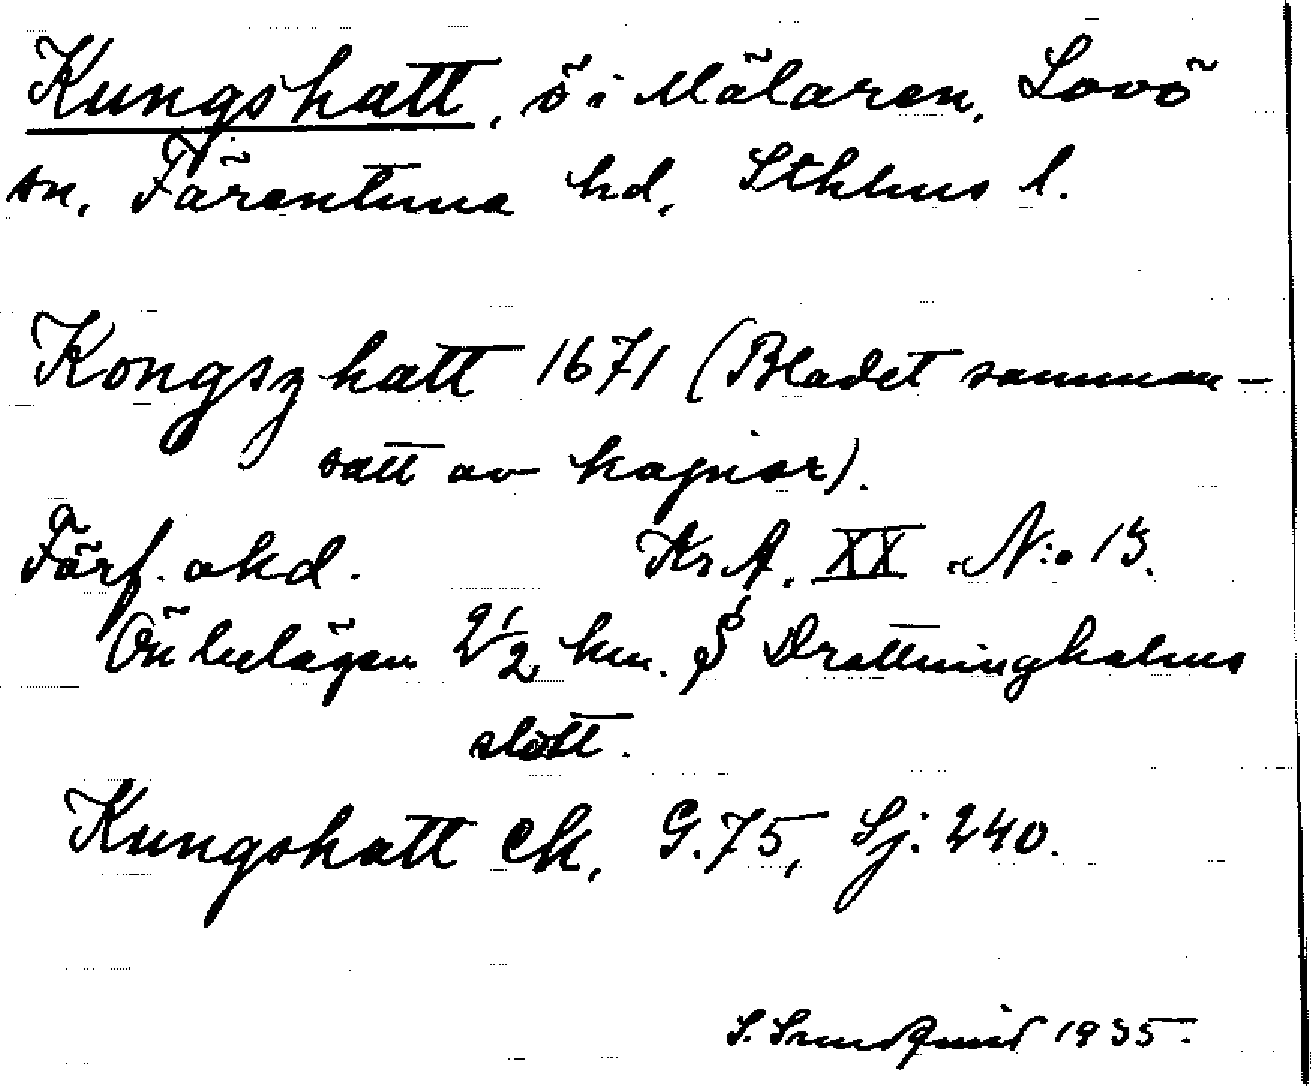 Kungshatt, ö i Mälaren, Lovö
sn, Färentuna hd, Sthlms l.
Kongszhatt 1671 (Bladet samman-
satt av kopior).
Förf. okd. Kr.A. XX N:o 13.
Ön belägen 2 1/2 km. S Drottningholms
slott.
Kungshatt ek, G. 75, Sj. 240.
S. Sundquist 1935.